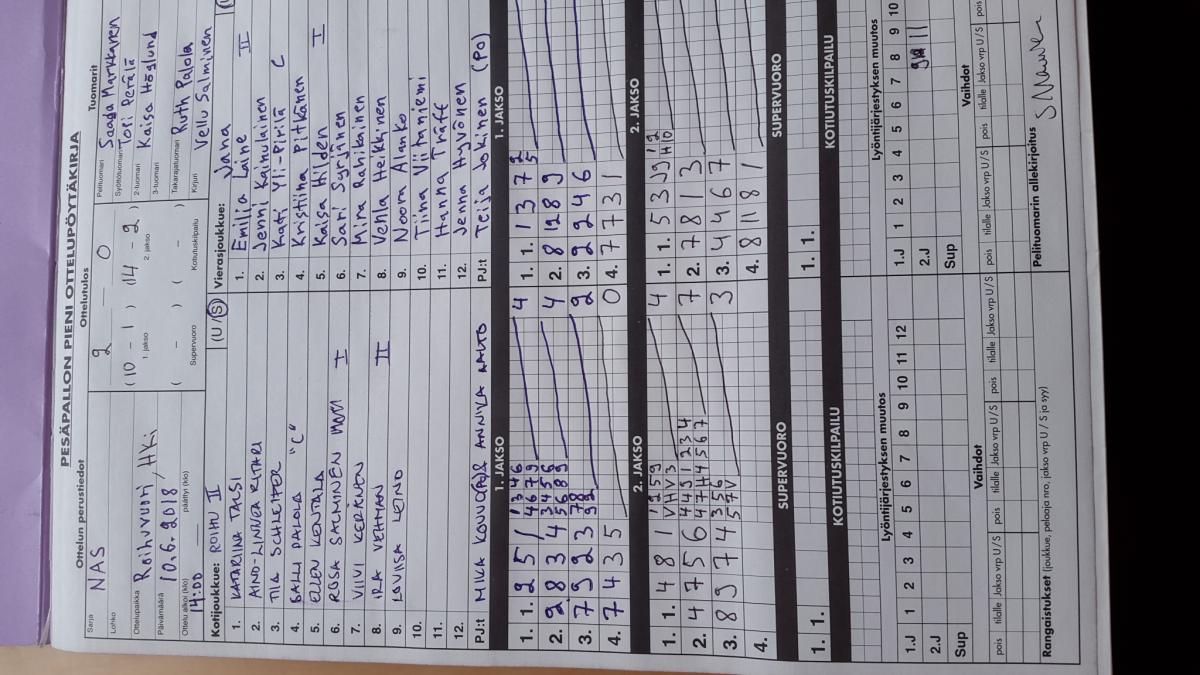 PESÄPALLON PIENI OTTELUPÖYTÄKIRJA
Ottelun perustiedot
Sarja NAS
Lohko
Ottelupaikka Roihuvuori, HKi
Päivämäärä 10.6.2018
Ottelu alkoi (klo) 14:00 päättyi (klo)
Ottelutulos
2 — 0
(10 - 1) (14 - 2)
1. jakso 2. jakso
( - ) ( - )
Supervuoro Kotiutuskilpailu
Tuomarit
Pelituomari Saada Markkanen
Syöttötuomari Topi Perälä
2-tuomari Kaisa Höglund
3-tuomari
Takarajatuomari Ruth Palola
Kirjuri Vellu Salminen
Kotijoukkue: ROIHU II (U/S)
1. KATARIINA TALSI
2. AINO-LINNEA RITARI
3. TIIA SCHLEIFER
4. SALLI PALOLA "C"
5. ELLEN KONTALA
6. ROSA SALMINEN I
7. VIIVI KERÄNEN
8. IRA VEHMAN II
9. LOVIISA LEINO
10.
11.
12.
PJ:t MIKA KOUVO(PO) & ANNIKA AALTO
Vierasjoukkue: Jana
1. Emilia Laine II
2. Jenni Kainulainen
3. Kati Yli-Pirilä C
4. Kristiina Pitkänen
5. Kaisa Hilden I
6. Sari Syrjänen
7. Mira Rahikainen
8. Venla Heikkinen
9. Noora Alanko
10. Tiina Viitaniemi
11. Hanna Träff
12. Jenna Hyvönen
PJ:t Teija Jokinen (PO)
1. JAKSO
1. 1. 2 5 1 4
2. 2 8 3 4 4
3. 7 9 2 3 2
4. 7 4 3 5 0
1. JAKSO
1. 1. 1 3 7
2. 8 12 8 9
3. 2 2 4 6
4. 7 7 3 1
2. JAKSO
1. 1. 4 8 1 4
2. 4 7 5 6 7
3. 8 9 7 4 3
4.
2. JAKSO
1. 1. 5 3
2. 7 8 1 3
3. 4 4 6 7
4. 8 11 8 1
SUPERVUORO
1. 1.
SUPERVUORO
1. 1.
KOTIUTUSKILPAILU
KOTIUTUSKILPAILU
Lyöntijärjestyksen muutos
1.J 1 2 3 4 5 6 7 8 9 10 11 12
2.J
Sup
Lyöntijärjestyksen muutos
1.J 1 2 3 4 5 6 7 8 9 10
2.J 11
Sup
Vaihdot
pois tilalle Jakso vrp U/S pois tilalle Jakso vrp U/S pois tilalle Jakso vrp U/S
Vaihdot
pois tilalle Jakso vrp U/S pois tilalle Jakso vrp U/S pois
Rangaistukset (joukkue, pelaaja nro, jakso vrp U/S ja syy)
Pelituomarin allekirjoitus